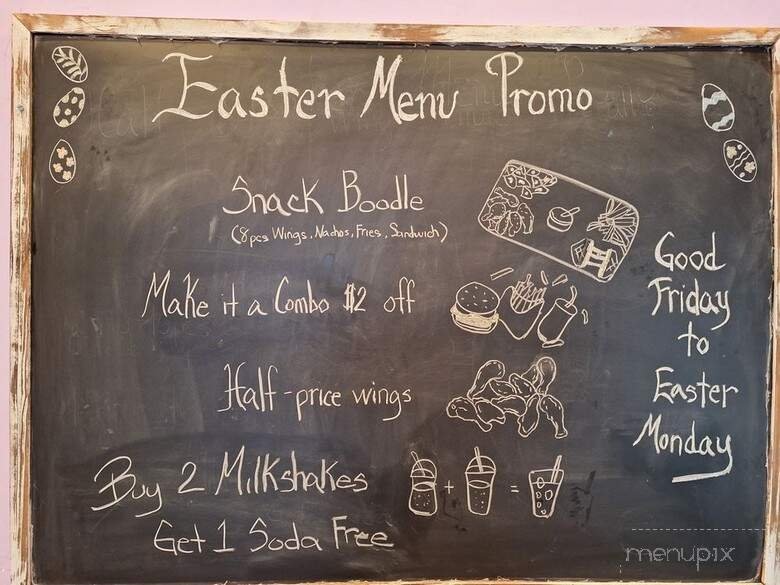 Easter Menu Promo
Snack Boodle
(8pcs Wings, Nachos, Fries, Sandwich)
Make it a Combo $2 off
Half-price wings
Buy 2 Milkshakes
Get 1 Soda Free
+ =
Good
Friday
to
Easter
Monday
menupix